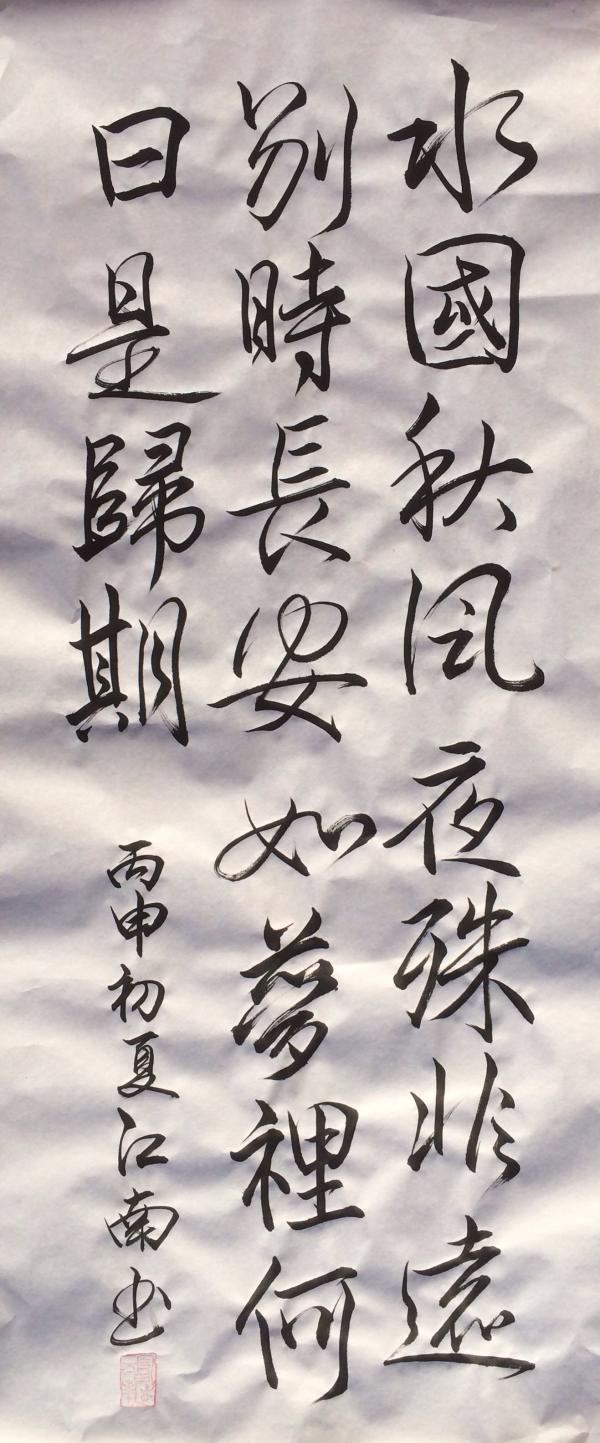 水國秋風夜殊非遠
別時長安如夢裡何
日是歸期
丙申初夏江南书